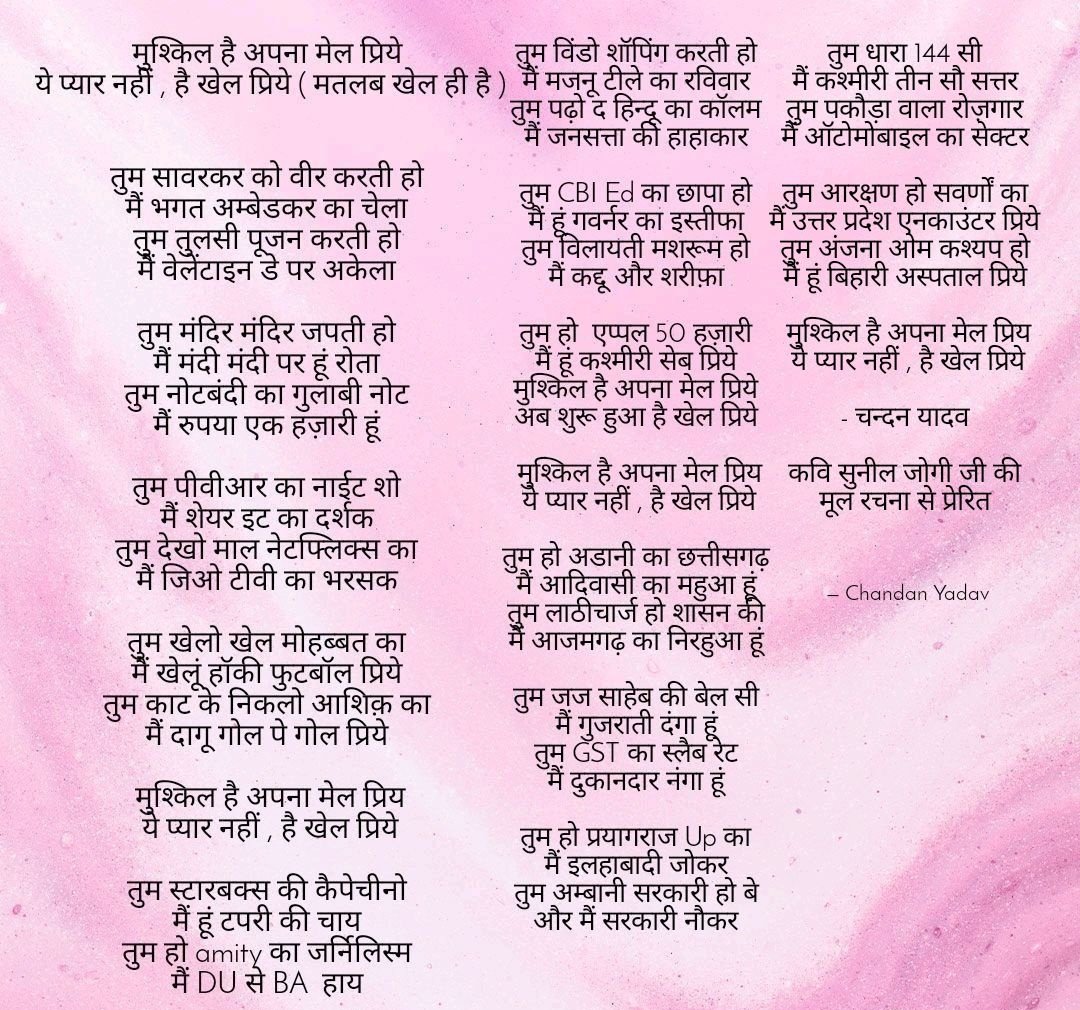 मुश्किल है अपना मेल प्रिये
ये प्यार नहीं , है खेल प्रिये ( मतलब खेल ही है )
तुम सावरकर को वीर करती हो
मैं भगत अम्बेडकर का चेला
तुम तुलसी पूजन करती हो
मैं वेलेंटाइन डे पर अकेला
तुम मंदिर मंदिर जपती हो
मैं मंदी मंदी पर हूं रोता
तुम नोटबंदी का गुलाबी नोट
मैं रुपया एक हज़ारी हूं
तुम पीवीआर का नाईट शो
मैं शेयर इट का दर्शक
तुम देखो माल नेटफ्लिक्स का
मैं जिओ टीवी का भरसक
तुम खेलो खेल मोहब्बत का
मैं खेलूं हॉकी फुटबॉल प्रिये
तुम काट के निकलो आशिक़ का
मैं दागू गोल पे गोल प्रिये
मुश्किल है अपना मेल प्रिय
ये प्यार नहीं , है खेल प्रिये
तुम स्टारबक्स की कैपेचीनो
मैं हूं टपरी की चाय
तुम हो amity का जर्निलिस्म
मैं DU से BA हाय
तुम विंडो शॉपिंग करती हो
मैं मजनू टीले का रविवार
तुम पढ़ो द हिन्दू का कॉलम
मैं जनसत्ता की हाहाकार
तुम CBI Ed का छापा हो
मैं हूं गवर्नर का इस्तीफा
तुम विलायती मशरूम हो
मैं कद्दू और शरीफ़ा
तुम हो एप्पल 50 हज़ारी
मैं हूं कश्मीरी सेब प्रिये
मुश्किल है अपना मेल प्रिये
अब शुरू हुआ है खेल प्रिये
मुश्किल है अपना मेल प्रिय
ये प्यार नहीं , है खेल प्रिये
तुम हो अडानी का छत्तीसगढ़
मैं आदिवासी का महुआ हूं
तुम लाठीचार्ज हो शासन की
मैं आजमगढ़ का निरहुआ हूं
तुम जज साहेब की बेल सी
मैं गुजराती दंगा हूं
तुम GST का स्लैब रेट
मैं दुकानदार नंगा हूं
तुम हो प्रयागराज Up का
मैं इलहाबादी जोकर
तुम अम्बानी सरकारी हो बे
और मैं सरकारी नौकर
तुम धारा 144 सी
मैं कश्मीरी तीन सौ सत्तर
तुम पकौड़ा वाला रोज़गार
मैं ऑटोमोबाइल का सेक्टर
तुम आरक्षण हो सवर्णों का
मैं उत्तर प्रदेश एनकाउंटर प्रिये
तुम अंजना ओम कश्यप हो
मैं हूं बिहारी अस्पताल प्रिये
मुश्किल है अपना मेल प्रिय
ये प्यार नहीं , है खेल प्रिये
- चन्दन यादव
कवि सुनील जोगी जी की
मूल रचना से प्रेरित
– Chandan Yadav